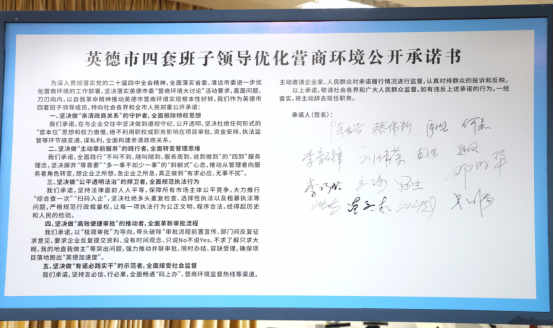 英德市四套班子领导优化营商环境公开承诺书
为深入贯彻落实党的二十届四中全会精神,全面落实省委、清远市委进一步优
化营商环境的工作部署,坚决落实英德市委“营商环境大讨论”活动要求,直面问题,
刀刃向内,以自我革命精神推动英德市营商环境实现根本性好转,我们作为英德市
四套班子领导成员,特向社会各界和全市人民郑重公开承诺:
一、坚决做“亲清政商关系”的守护者,全面根除特权思想
我们承诺,在与企业交往中坚决做到遵规守纪、公开透明,坚决杜绝任何形式的
“官本位”思想和权力傲慢,绝不利用职权或职务影响在项目审批、资金安排、执法监
管等环节搞变通、谋私利,全面构建亲清政商关系。
二、坚决做“主动靠前服务”的践行者,全面转变管理思维
我们承诺,全面践行“不叫不到、随叫随到、服务周到、说到做到”的“四到”服务
理念,坚决摒弃“等靠要”“多一事不如少一事”的“斜躺式”心态,推动从管理者向服务
者角色转变,想企业之所想,急企业之所急,真正做到“有求必应,无事不扰”。
三、坚决做“公平透明法治”的捍卫者,全面规范执法行为
我们承诺,坚持法律面前人人平等,保障所有市场主体公平竞争,大力推行
“综合查一次”“扫码入企”,坚决杜绝多头重复检查、选择性执法以及粗暴执法等
问题,严格规范行政裁量权,让每一项执法行为公正文明、程序合法,经得起历史
和人民的检验。
四、坚决做“高效便捷审批”的推动者,全面革新审批流程
我们承诺,以“极简审批”为导向,带头破除“审批流程前置宣传、部门间反复征
求意见、要求企业反复提交资料、没有时间观念、只说No不说Yes、不求了解只求大
概、我的地盘我做主”等突出问题,强力推动并联审批、限时办结、容缺受理,确保项
目落地跑出“英德加速度”。
五、坚决做“有诺必践实干”的示范者,全面接受社会监督
我们承诺,坚持言必信、行必果,全面畅通“码上办”、营商环境监督热线等渠道,
主动邀请企业家、人民群众对承诺履行情况进行监督,认真对待群众的投诉和反映。
以上承诺,敬请社会各界和广大人民群众监督。如有违反上述承诺的行为,一经
查实,将主动辞去现任职务。
承诺人(签名):